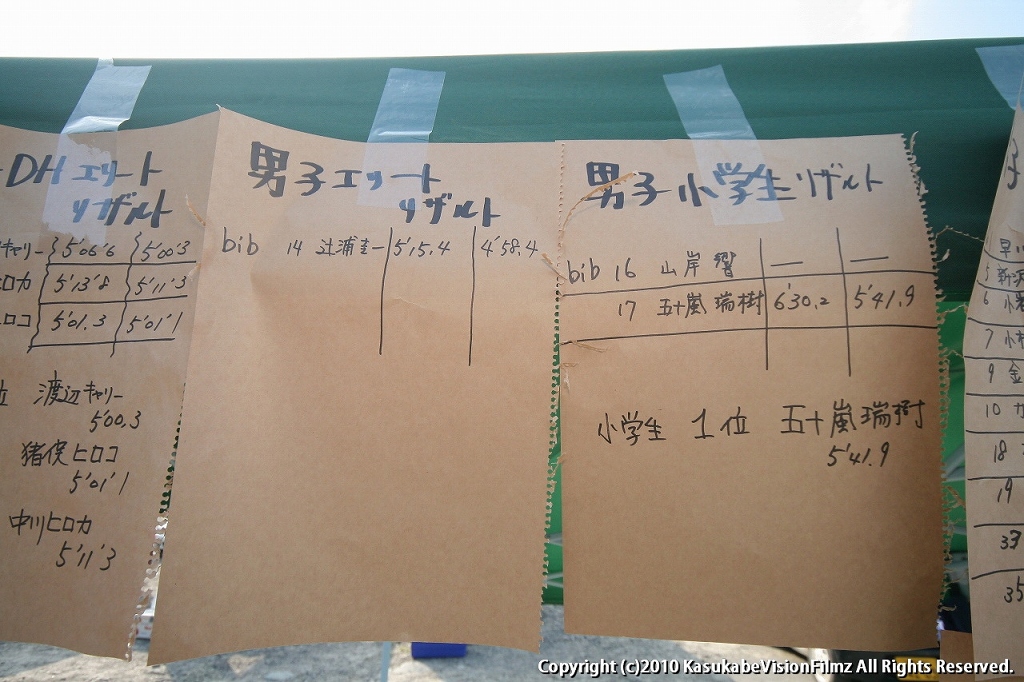 DHエリート
リザルト
キャリー 5'06'6 5'00'3
ヒロカ 5'13'8 5'11'3
ヒロコ 5'01.3 5'01'1
位 渡辺キャリー
5'00.3
猪俣ヒロコ
5'01'1
中川ヒロカ
5'11'3
男子エリート
リザルト
bib 14 辻浦圭一 5'15.4 4'58.4
男子小学生リザルト
bib 16 山岸 響 — —
17 五十嵐 瑞樹 6'30.2 5'41.9
小学生 1位 五十嵐瑞樹
5'41.9
子
早川
5 新沢
6 小
7 小林
9 金
10
18
19
33
35
Copyright (c)2010 KasukabeVisionFilmz All Rights Reserved.